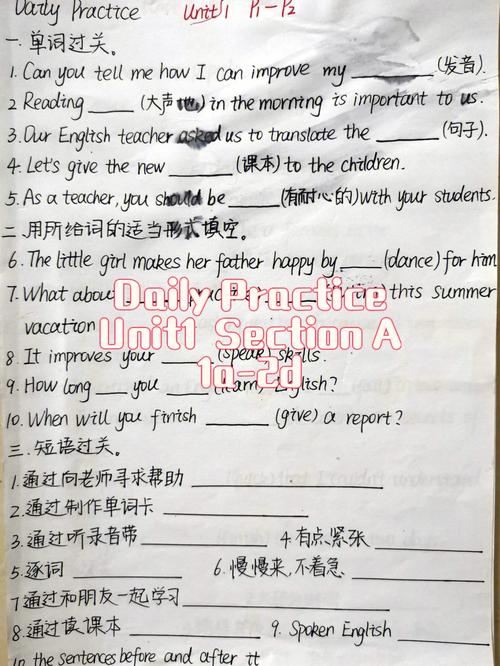 Daily Practice Unit1 P1-P2
一.单词过关。
1. Can you tell me how I can improve my ______ (发音).
2 Reading ____ (大声地) in the morning is important to us.
3. Our English teacher asked us to translate the ____ (句子).
4. Let's give the new ____ (课本) to the children.
5. As a teacher, you should be ____ (有耐心的) with your students.
二.用所给词的适当形式填空。
6. The little girl makes her father happy by ____ (dance) for him
7. What about this summer
vacation
8. It improves your ____ (speak) skills.
9. How long ___ you ____ (learn) English?
10. When will you finish ____ (give) a report?
三.短语过关。
1.通过向老师寻求帮助 ____
2.通过制作单词卡 ____
3.通过听录音带 ____ 4.有点紧张 ____
5.逐词 ____ 6.慢慢来,不着急 ____
7通过和朋友一起学习 ____
8.通过读课本 ____ 9. Spoken English ____
in the sentences before and after it
Daily Practice
Unit1 Section A
1a-2d